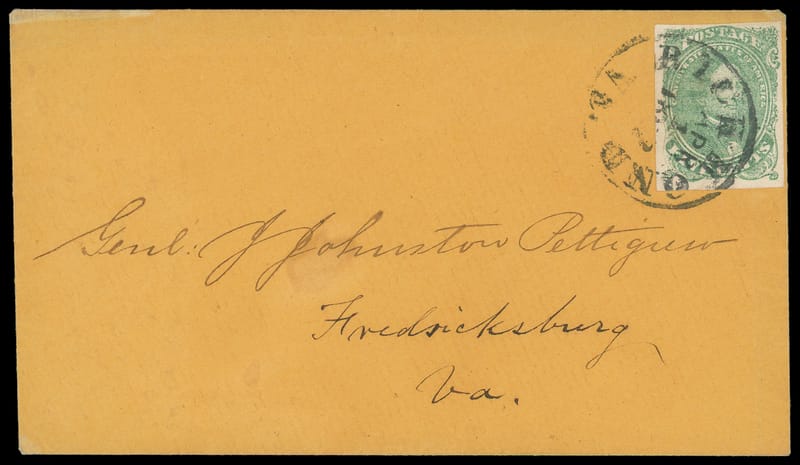 POSTAGE
RICHMOND VA.
APR
Genl: J Johnston Pettigrew
Fredricksburg
Va.